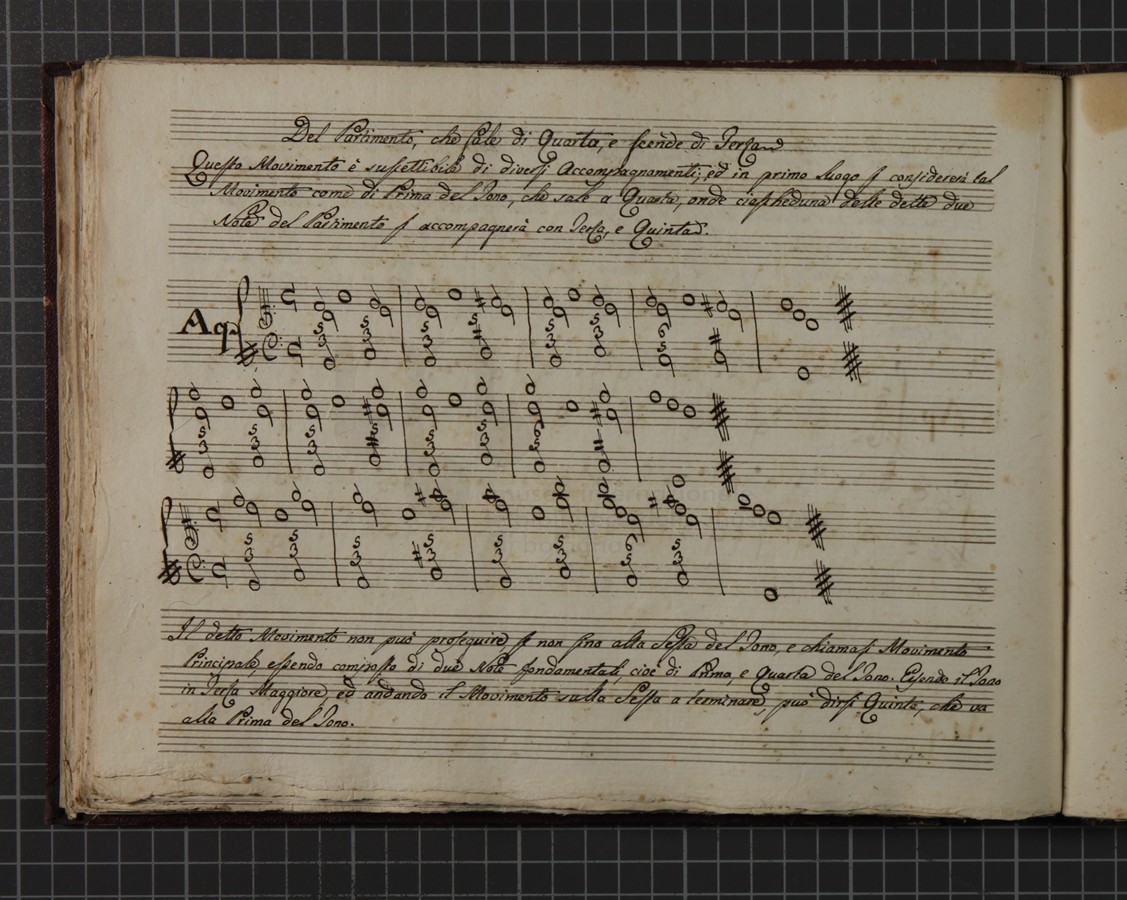 Del Partimento, che sale di Quarta, e scende di Terza
Questo Movimento è suscettibile di diversi Accompagnamenti; ed in primo luogo si considererà tal
Movimento come di Prima del Tono, che sale a Quarta, onde ciascheduna delle dette due
Note del Partimento si accompagnerà con Terza, e Quinta.
Il detto Movimento non può proseguire, se non sino alla Sesta del Tono, e chiamasi Movimento
Principale, essendo composto di due Note fondamentali, cioè di Prima, e Quarta del Tono. Essendo il Tono
in Terza Maggiore, ed andando il Movimento sulla Sesta a terminare, può dirsi Quinta, che va
alla Prima del Tono.